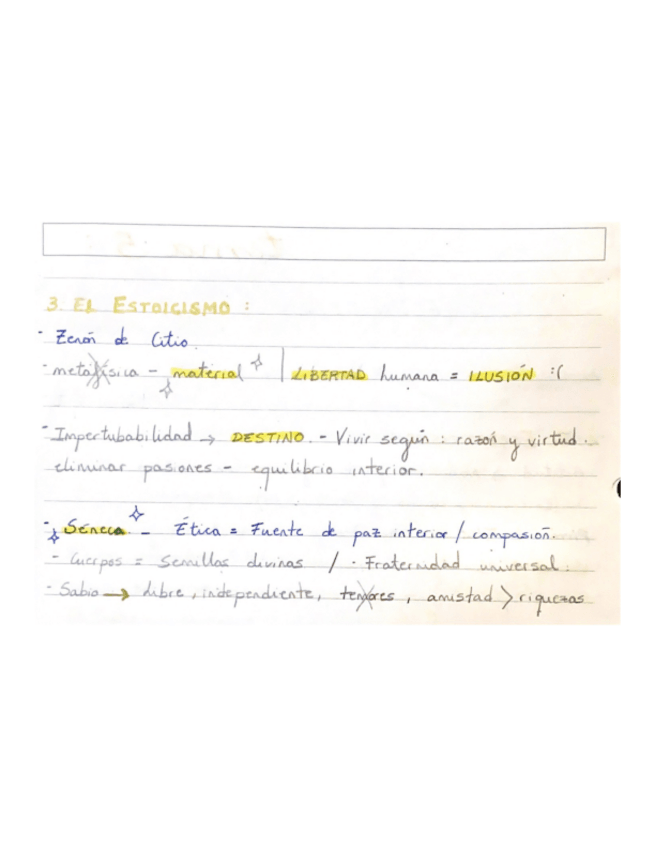 3. El ESTOICISMO :
- Zenón de Citio.
- metafísica - material | LIBERTAD humana = ILUSIÓN :(
- Impertubabilidad → DESTINO. - Vivir según : razón y virtud.
eliminar pasiones - equilibrio interior.
- Séneca - Ética = Fuente de paz interior / compasión.
- Cuerpos = Semillas divinas / · Fraternidad universal.
- Sabio → libre, independiente, temores, amistad > riquezas